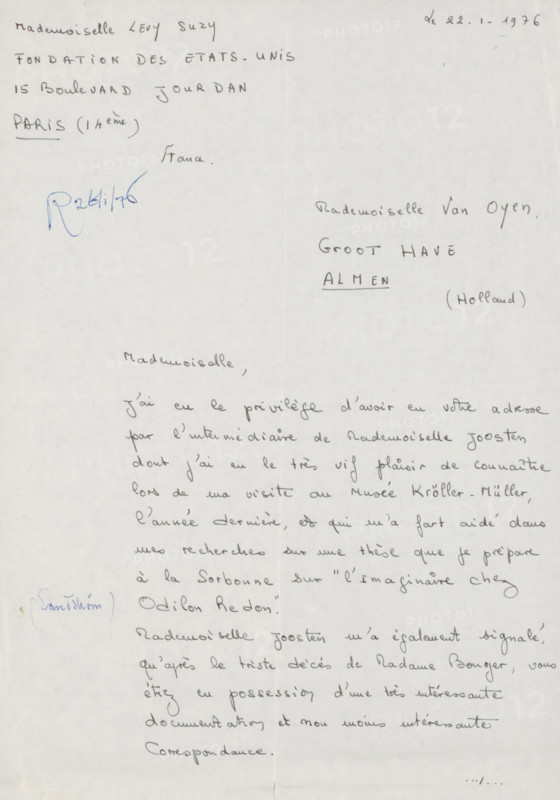 Mademoiselle LEVY SUZY
le 22.1.1976
FONDATION DES ETATS-UNIS
15 Boulevard JOURDAN
PARIS (14ème)
France.
R 26/1/76
Mademoiselle Van Oyen.
GROOT HAVE
ALMEN
(Holland)
Mademoiselle,
J'ai eu le privilège d'avoir eu votre adresse
par l'intermédiaire de Mademoiselle Joosten
dont j'ai eu le très vif plaisir de connaître
lors de ma visite au Musée Kröller-Müller,
l'année dernière, et qui m'a fort aidé dans
mes recherches sur une thèse que je prépare
à la Sorbonne sur "l'imaginaire chez
Odilon Redon".
Mademoiselle Joosten m'a également signalé,
qu'après le triste décès de Madame Bonger, vous
étiez en possession d'une très intéressante
documentation et non moins intéressante
Correspondance.
.../...